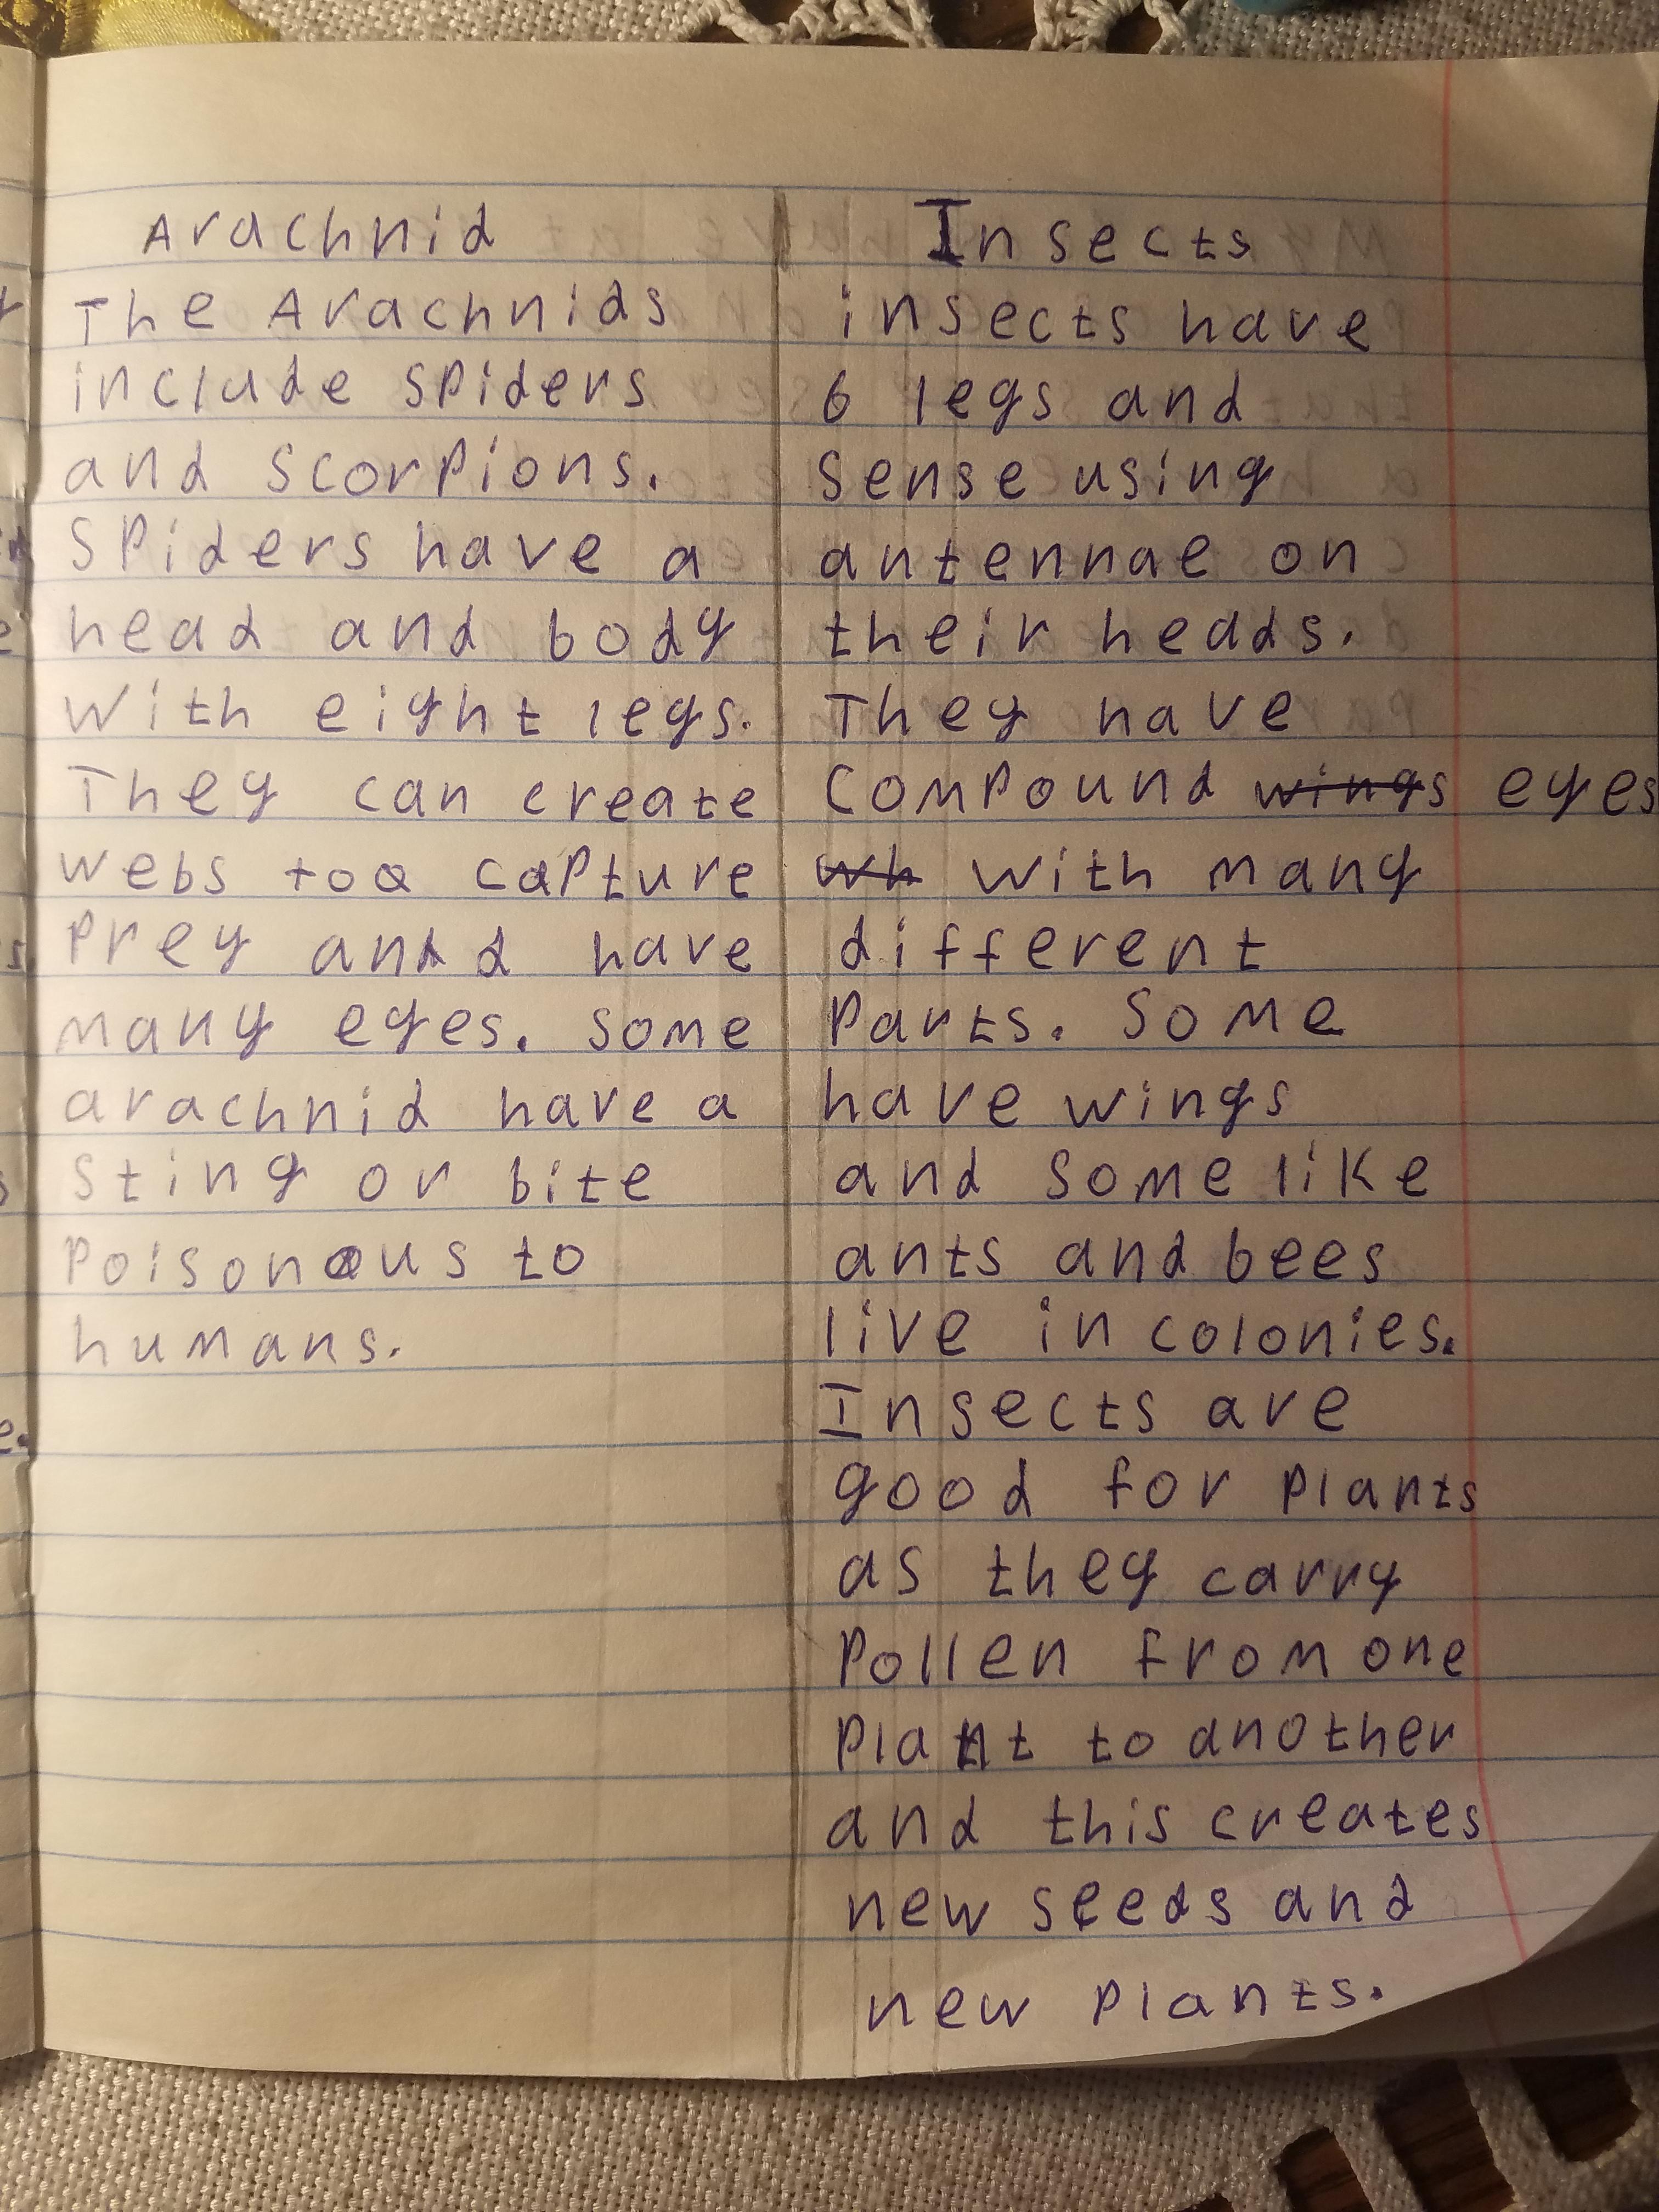 Arachnid
The Arachnids
include spiders
and scorpions.
Spiders have a
head and body
with eight legs.
They can create
webs too capture
prey and have
many eyes. Some
arachnid have a
sting or bite
poisonous to
humans.
Insects
insects have
6 legs and
sense using
antennae on
their heads.
They have
compound wings eyes
wh with many
different
parts. Some
have wings
and some like
ants and bees
live in colonies.
Insects are
good for plants
as they carry
pollen from one
plant to another
and this creates
new seeds and
new plants.